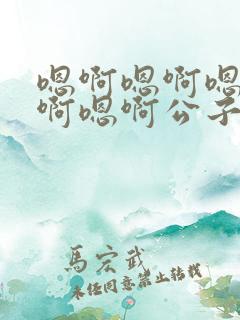 嗯啊嗯啊嗯
啊嗯啊公子
馬宏武
未经同意禁止转载